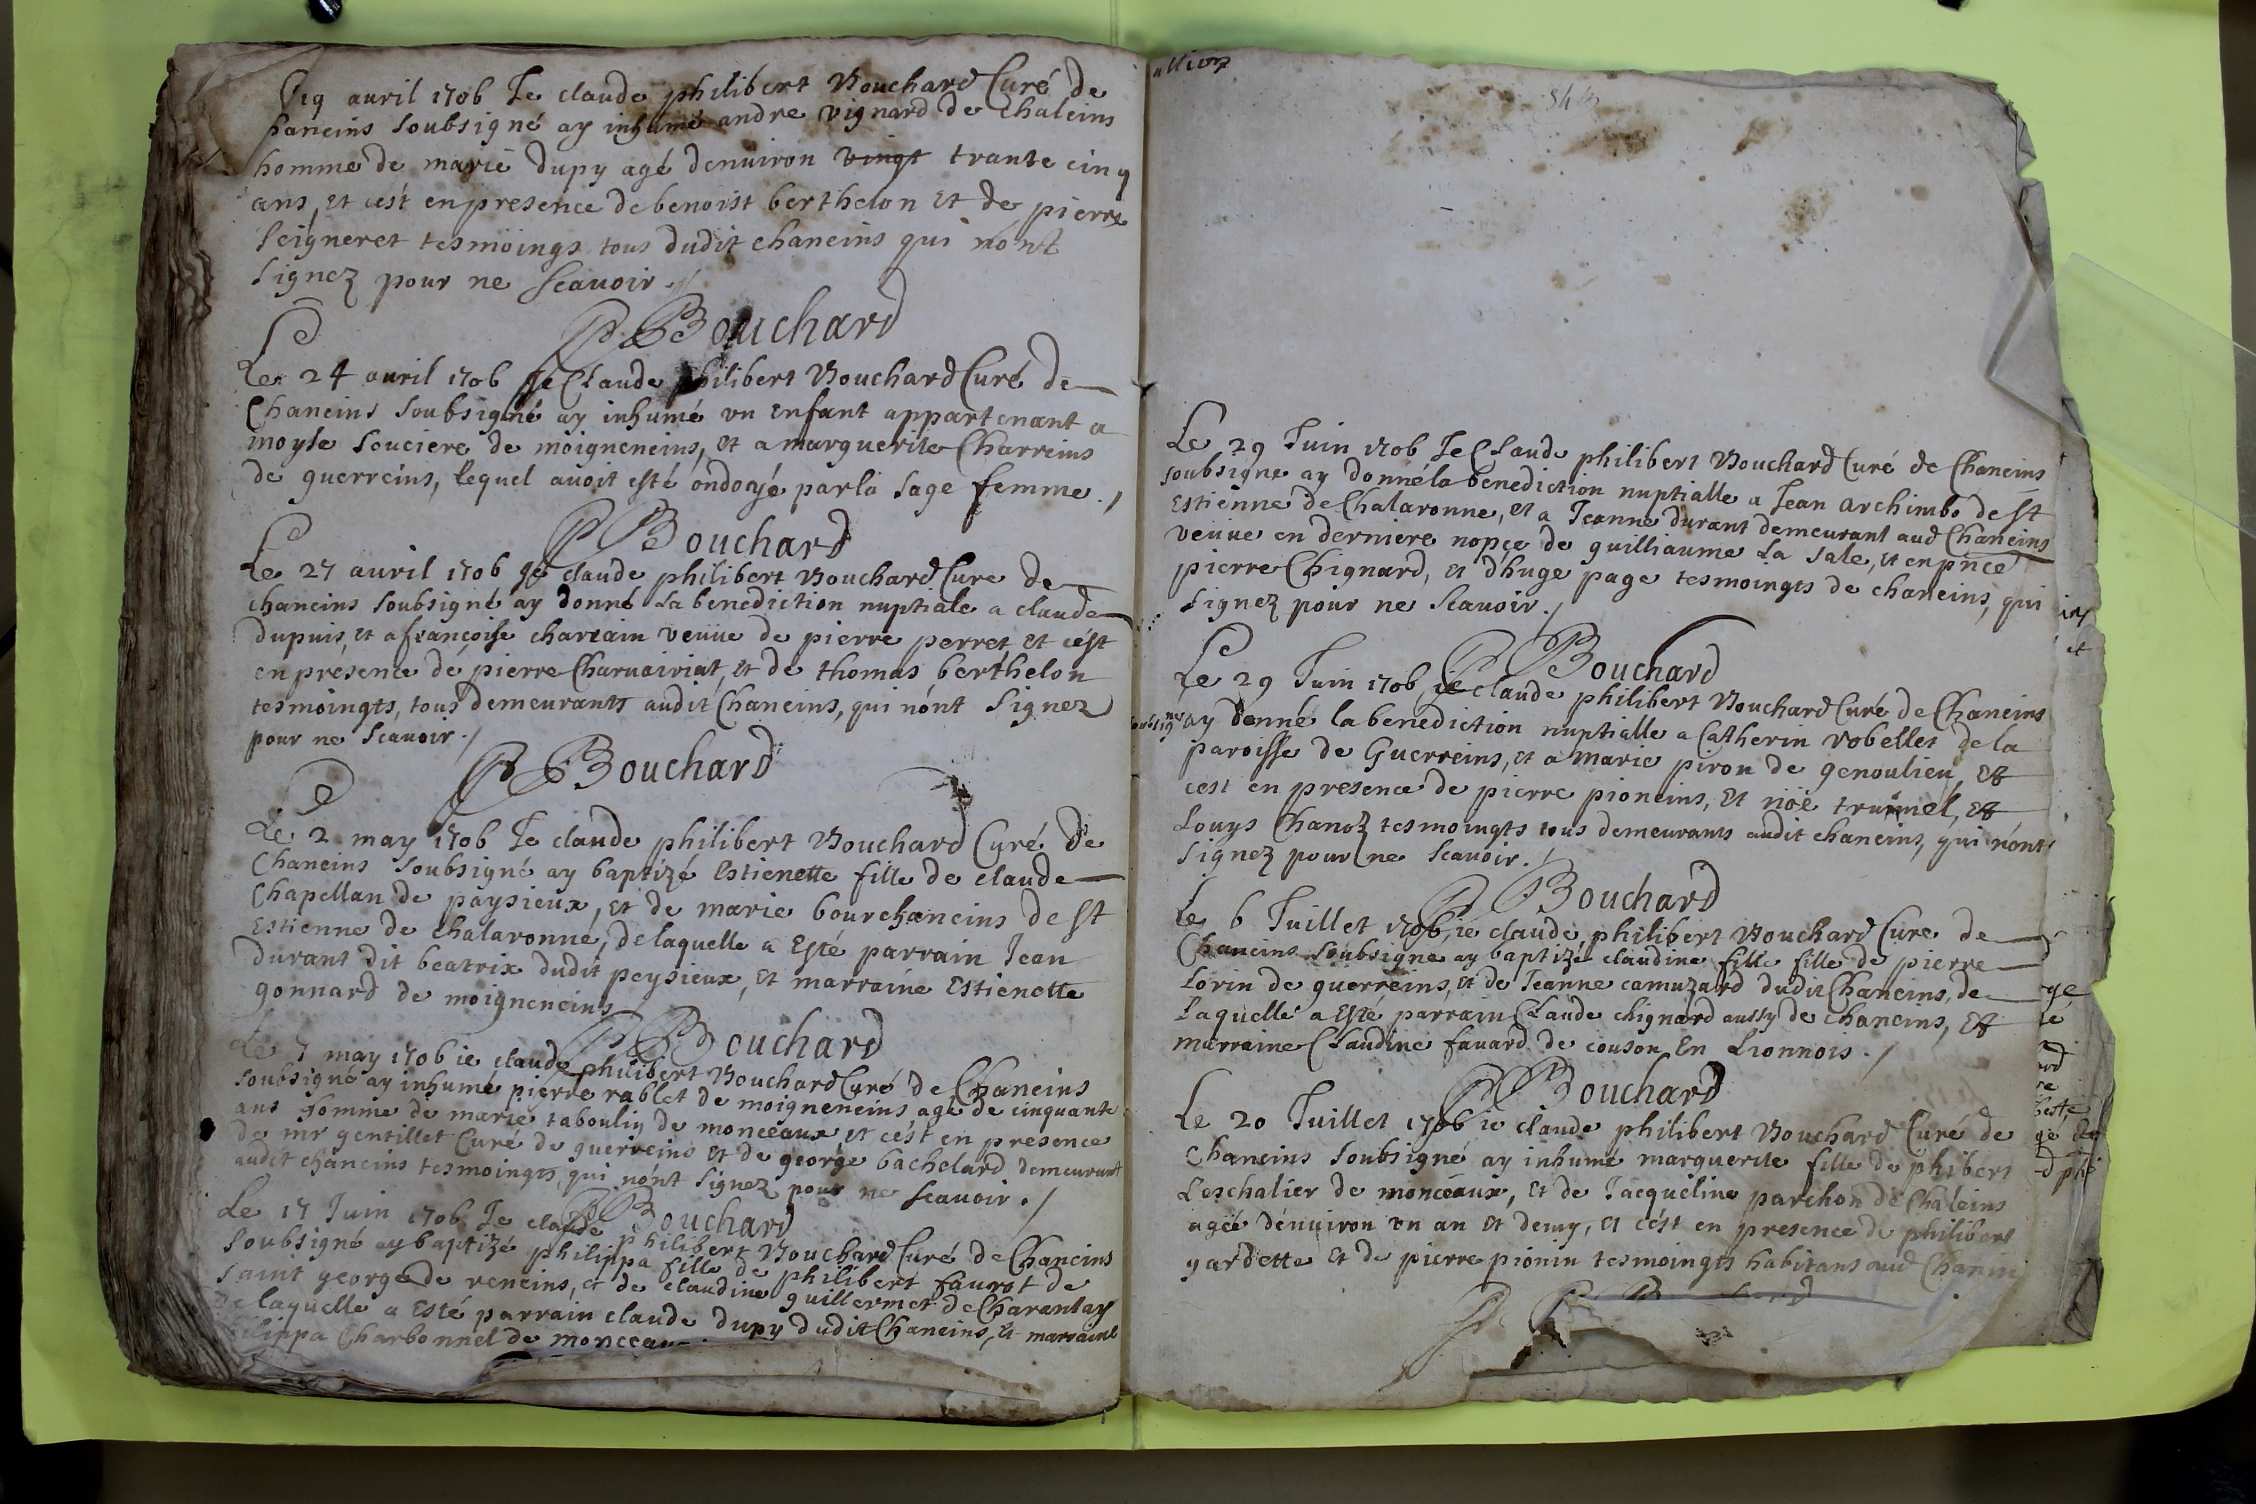 19 avril 1706 Je claude philibert Bouchard Curé de
haneins soubsigné ay inhumé andre vignard de Chaleins
homme de marie dupy agé denuiron vingt trante cinq
ans, et cest en presence de benoist berthelon et de pierre
seigneret tesmoings tous dudit chaneins qui nont
signez pour ne scauoir
Bouchard
Le 24 avril 1706 je Claude philibert Bouchard Curé de
Chaneins soubsigné ay inhumé vn enfant appartenant a
moyse souciere de moigneneins, et a marguerite Charreins
de guerreins, lequel auoit esté ondoyé par la sage femme.
Bouchard
Le 27 avril 1706 je claude philibert Bouchard Cure de
chaneins soubsigné ay donné la benediction nuptiale a claude
dupuis, et a françoise charrain veuue de pierre perret, et cést
en presence de pierre Charuairiat, et de thomas berthelon
tesmoingts, tous demeurants audit Chaneins, qui nónt signez
pour ne scauoir.
Bouchard
Le 2 may 1706 Je claude philibert Bouchard Curé de
Chaneins soubsigné ay baptizé Estienette fille de claude
Chapellan de paysieux, et de marie bourchaneins de st
Estienne de chalaronne, de laquelle a Esté parrain Jean
durant dit beatrix dudit peysieux, et marraine Estienette
gonnard de moigneneins
Bouchard
Le 7 may 1706 ie claude philibert Bouchard Curé de Chaneins
soubsigné ay inhumé pierre rablet de moigneneins agé de cinquante
ans homme de marie taboulin de monceaux et cést en presence
de mr gentillet Curé de guerreins et de george bachelard demeurant
audit chaneins tesmoingts, qui nónt signez pour ne scauoir.
Bouchard
Le 17 Juin 1706 Je claude philibert Bouchard Curé de Chaneins
soubsigné ay baptizé philippa fille de philibert faurot de
saint george de reneins, et de claudine guillermet de Charantay
de laquelle a Esté parrain claude dupy dudit Chaneins, et marraine
ilippa Charbonnel de monceau
Le 29 Juin 1706 Je Claude philibert Bouchard Curé de Chaneins
soubsigne ay donné la benediction nuptialle a Jean archimbo de st
Estienne de Chalaronne, et a Jeanne durant demeurant aud Chaneins
veuue en derniere nopce de guilliaume la sale, et en pnce
pierre Chignard, et dhuge page tesmoingts de chaneins, qui
signez pour ne scauoir.
Bouchard
Le 29 Juin 1706, ie claude philibert Bouchard Curé de Chaneins
soubsigné ay donné la benediction nuptialle a Catherin robellet de la
paroisse de Guerreins, et a marie piron de genoulieu, et
cest en presence de pierre pioneins, et noé trumel, et
Louys Chanoz tesmoingts tous demeurants audit chaneins, qui nónt
signez pour ne scauoir.
Bouchard
Le 6 Juillet 1706, ie claude philibert Bouchard Cure de
Chaneins soubsigne ay baptizé claudine fille fille de pierre
Lorin de guerreins, et de Jeanne camuzard dudit Chaneins, de
Laquelle a Esté parrain Claude chignard aussy de chaneins, et
marraine Claudine fauard de couson En Lionnois.
Bouchard
Le 20 Juillet 1706 ie claude philibert Bouchard Curé de
Chaneins soubsigné ay inhumé marguerite fille de phibert
Leschalier de monceaux, et de Jacqueline parchon de Chaleins
agée dénuiron vn an et demy, et cést en presence de philibert
gardette et de pierre pionin tesmoingts habitans aud Chanin